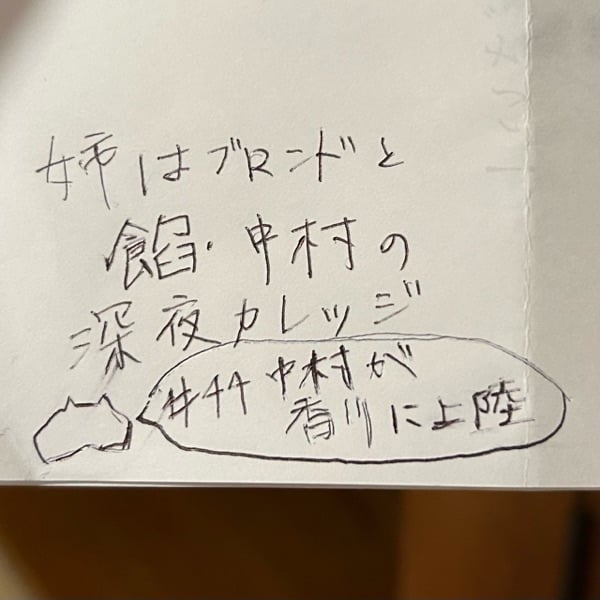 姉はブロンドと
餡・中村の
深夜カレッジ
#44 中村が
香川に上陸